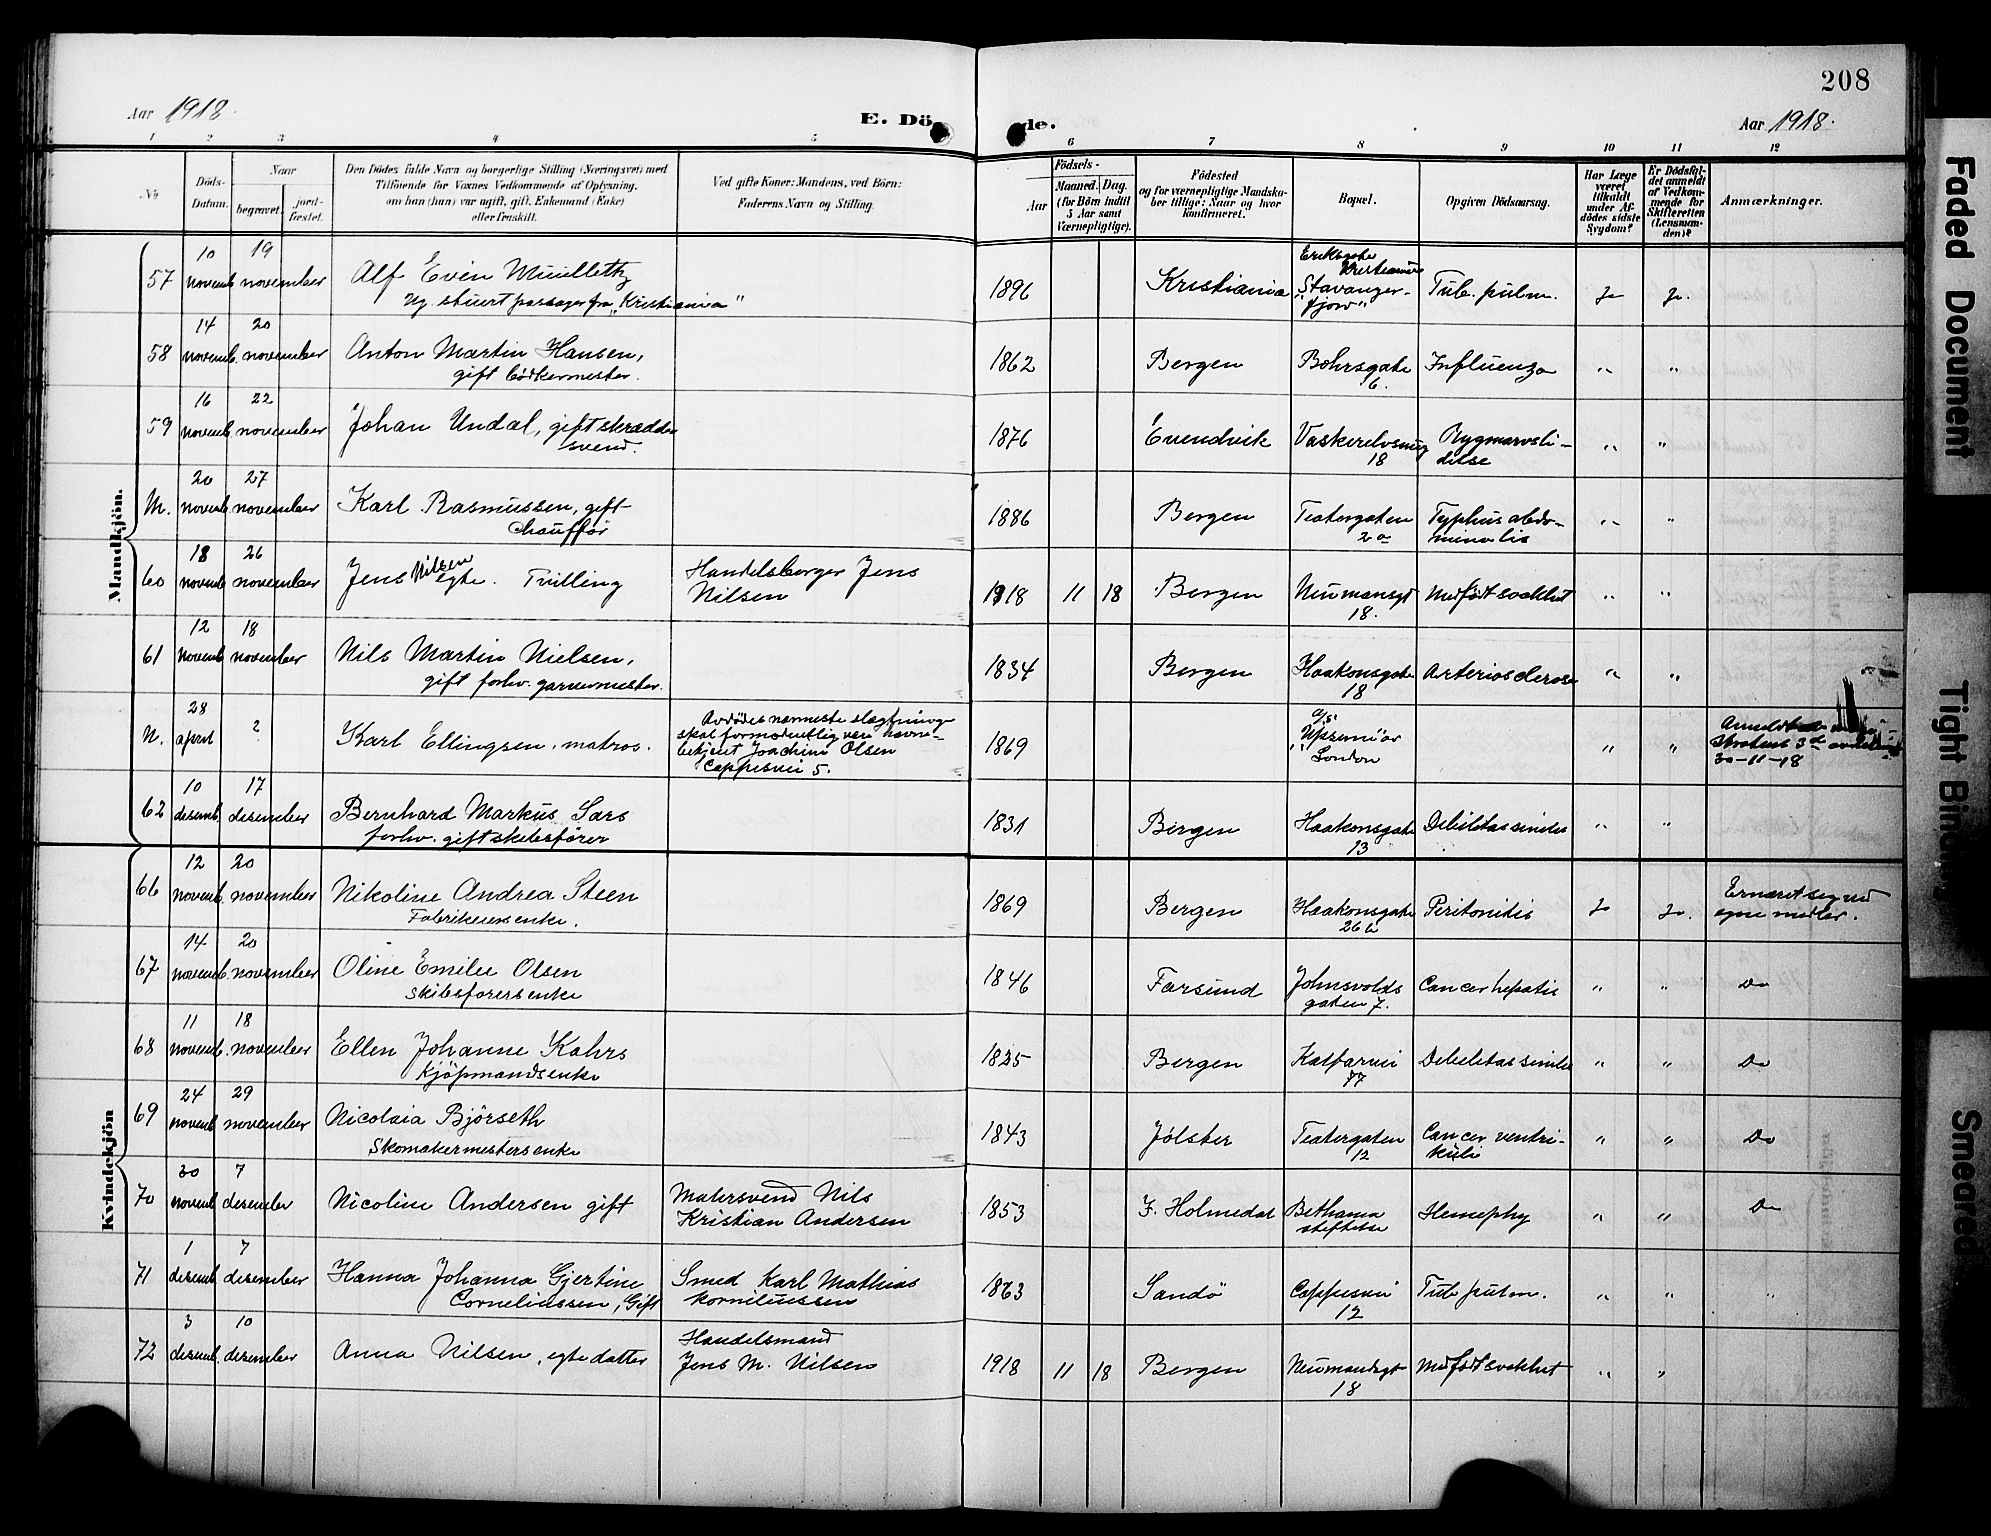 208
Aar 1918.
E. Dö
de.
Aar 1918.
1 2 3 4 5 6 7 8 9 10 11 12
No
Döds-
Datum.
Naar
begravet.
jord-
fæstet.
Den Dödes fulde Navn og borgerlige Stilling (Næringsvei) med
Tilföiende for Voxnes Vedkommende af Oplysning.
om han (hun) var ugift, gift, Enkemand (Enke)
eller fraskilt.
Ved gifte Koner: Mandens, ved Börn:
Faderens Navn og Stilling.
Födsels-
Aar
Maaned. Dag.
(for Börn indtil
5 Aar samt
Værnepligtige).
Födested
og for værnepligtige Mandska-
ber tillige: Naar og hvor
konfirmeret.
Bopæl.
Opgiven Dödsaarsag.
Har Læge
været
tilkaldt
under Af-
dödes sidste
Sygdom?
Er Dödsfal-
det anmeldt
af Vedkom-
mende for
Skifteretten
(Lensman-
den)?
Anmærkninger.
Mandkjön.
57 10 novemb. 19 november Alf Evin
Ug. stuert passager fra "Kristiania"
1896 Kristiania Stavanger-
fjord" Tub. pulm. Ja Ja.
58 14 novemb. 20 november Anton Martin Hansen,
gift bödkermester.
1862 Bergen Bohrsgate
6. Influenza " "
59 16 novemb. 22 november Johan Undal, gift skrædder
svend.
1876 Evendvik Vaskerelvsmug
18 Rygmarvsli-
delse " "
M. 20 novemb. 27 november Karl Rasmussen, gift
chaufför
1886 Bergen Teatergaten
2a Typhus abdo-
minalis " "
60 18 novemb. 26 november Jens Nilsen egte. Tvilling
Handelsborger Jens
Nilsen
1918 11 18 Bergen Neumansgt
18. Medfödt svakhet " "
61 12 novemb. 18 november Nils Martin Nielsen,
gift forhv. garvermester.
1834 Bergen Haakonsgate
18 Arteriosclerose " "
N. 28 april ? Karl Ellingsen, matros.
Avdödes nærmeste slegtninge
skal formodentlig være havne-
betjent Joachim Olsen
Cappesvei 5.
1869 a/s
av
London " "
3de
30-11-18
62 10 desemb. 17 desember Bernhard Markus Sars
forhv. gift skibsförer
1831 Bergen Haakonsgate
13 Debilitas senilis " "
Kvindekjön
66 12 novemb. 20 november Nikoline Andrea Steen
Fabrikeiersenke.
1869 Bergen Haakonsgate
26 b Peritonitis Ja Ja. Ernæret seg ved
egne midler.
67 14 novemb. 20 november Oline Emilie Olsen
Skibsförersenke
1846 Farsund Johnsvolds
gaten 7. Cancer hepatis " " Do
68 11 novemb. 18 november Ellen Johanne Kahrs
Kjöpmandsenke
1825 Bergen Kalfarvei
77 Debilitas senilis " " Do
69 24 novemb. 29 november Nicolaia Björseth
Skomakermestersenke
1843 Jölster Teatergaten
12 Cancer ventri-
kuli " " Do
70 30 novemb. 7 desember Nicoline Andersen gift
Malersvend Nils
Kristian Andersen
1853 Y. Holmedal Bethania
stiftelse " " Do
71 1 desemb. 7 desember Hanna Johanna Gjertine
Corneliussen, Gift
Smed Karl Mathias
Korneliussen
1863 Sandö Cappesvei
12 Tub. pulm. " " "
72 3 desemb. 10 desember Anna Nilsen, egte datter
Handelsmand
Jens M. Nilsen
1918 11 18 Bergen Neumansgt
18 Medfödt svakhet " "
Faded Document
Tight Binding
Smeared